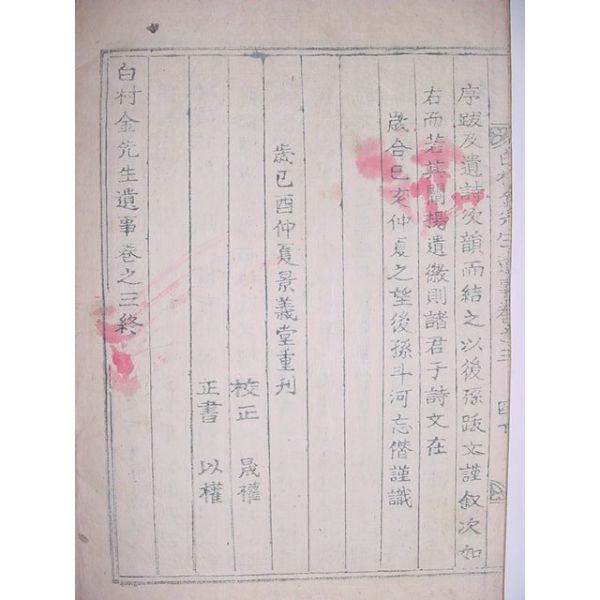 序跋及遺詩次韻而結之以後孫跋文謹叙次如
右而若其闡揚遺徽則諸君子詩文在
歲合巳亥仲夏之望後孫斗河忘僭謹識
歲己酉仲夏景義堂重刊
校正 晟權
正書 以權
白村金先生遺事卷之三終